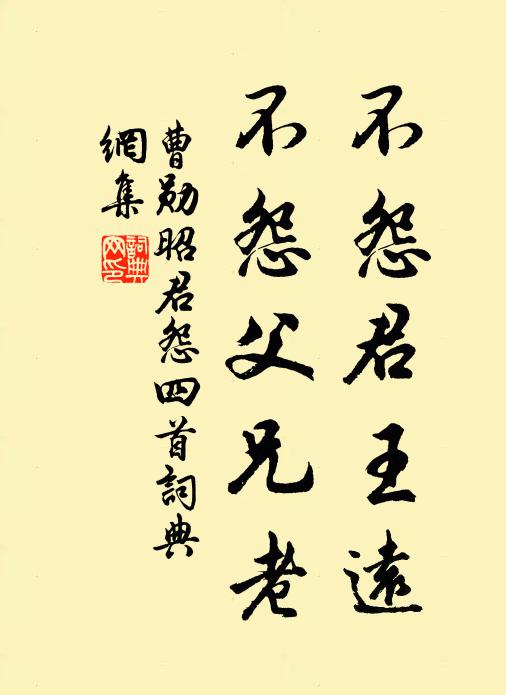 不怨君王遠
不怨父兄老
曹勛昭君怨四首詞典
網集
詞典網印